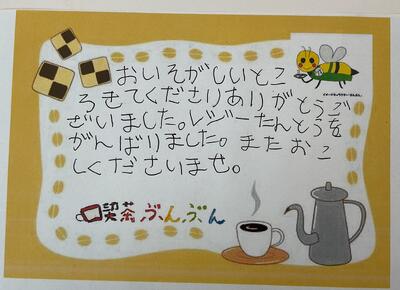 おいそがしいとこ
ろきてくださりありがとうご
ざいました。レジーたんとうを
がんばりました。またおこ
しくださいませ。
喫茶ぶんぶん